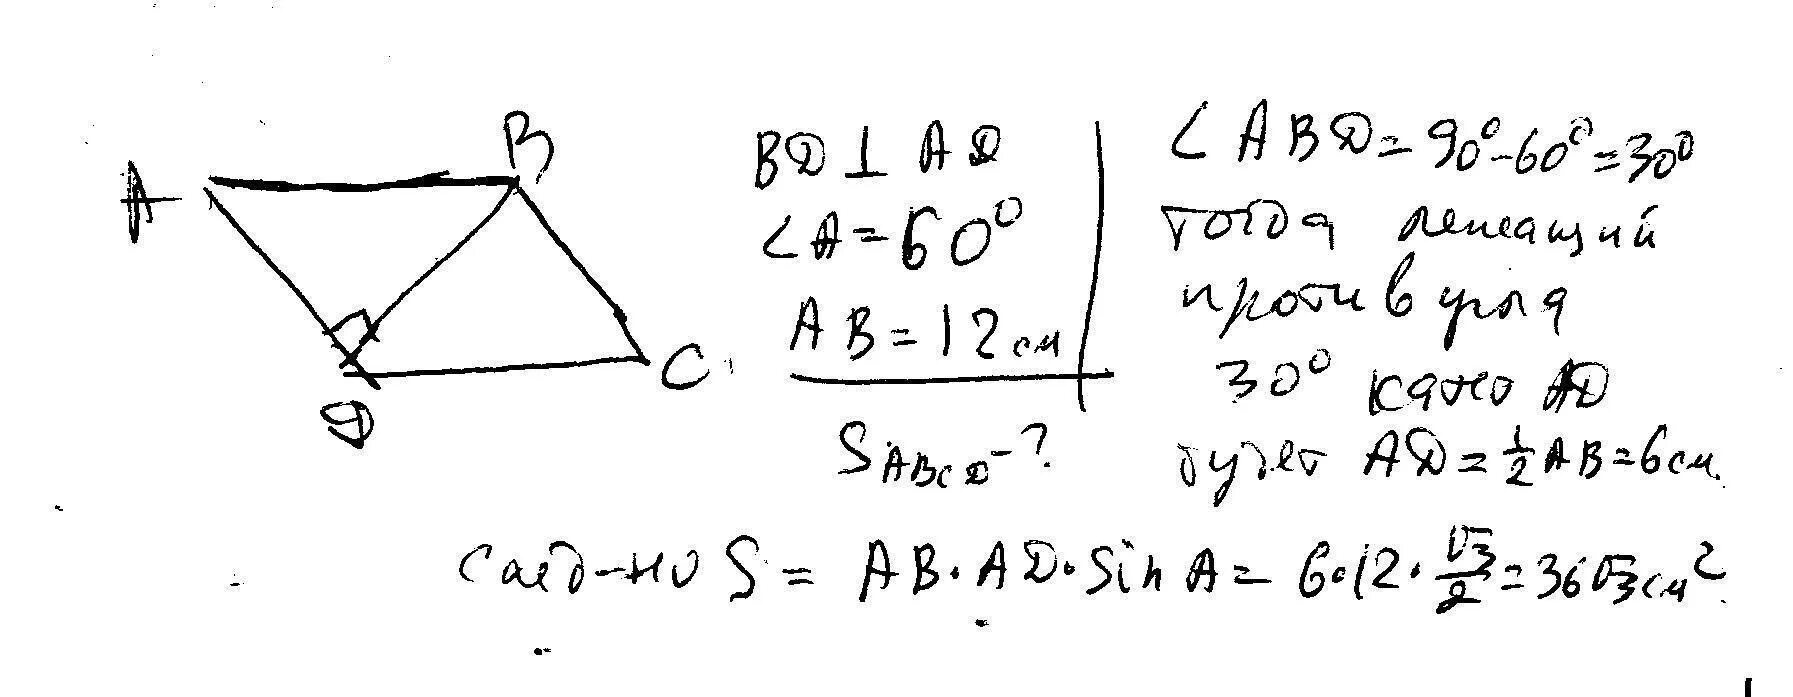 A
B
C
D
BD ⊥ AD
∠A = 60°
AB = 12 см
S ABCD - ?
∠ABD = 90° - 60° = 30°
тогда лежащий
против угла
30° катет AD
будет AD = 1/2 AB = 6 см
след-но S = AB · AD · sin A = 6 · 12 · √3/2 = 36√3 см²